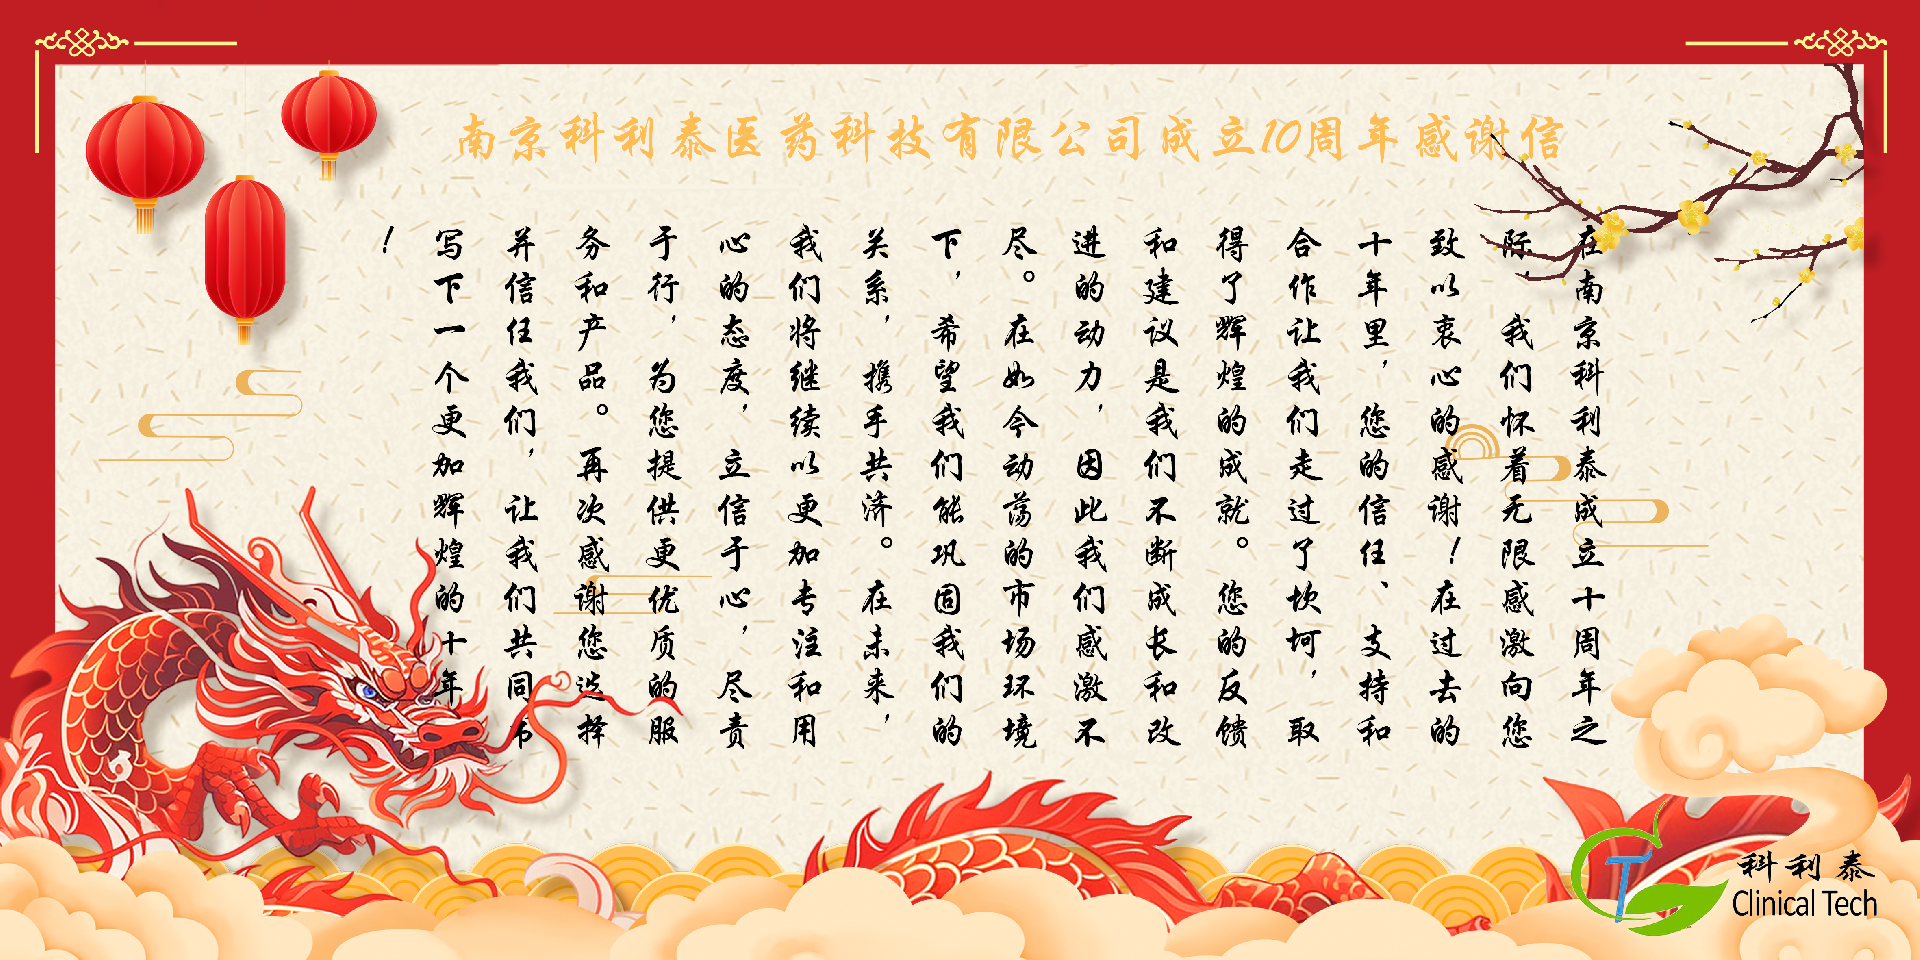 南京科利泰医药科技有限公司成立10周年感谢信
在南京科利泰成立十周年之
际，我们怀着无限感激向您
致以衷心的感谢！在过去的
十年里，您的信任、支持和
合作让我们走过了坎坷，取
得了辉煌的成就。您的反馈
和建议是我们不断成长和改
进的动力，因此我们感激不
尽。在如今动荡的市场环境
下，希望我们能巩固我们的
关系，携手共济。在未来，
我们将继续以更加专注和用
心的态度，立信于心，尽责
于行，为您提供更优质的服
务和产品。再次感谢您选择
并信任我们，让我们共同书
写下一个更加辉煌的十年
！
科利泰
Clinical Tech